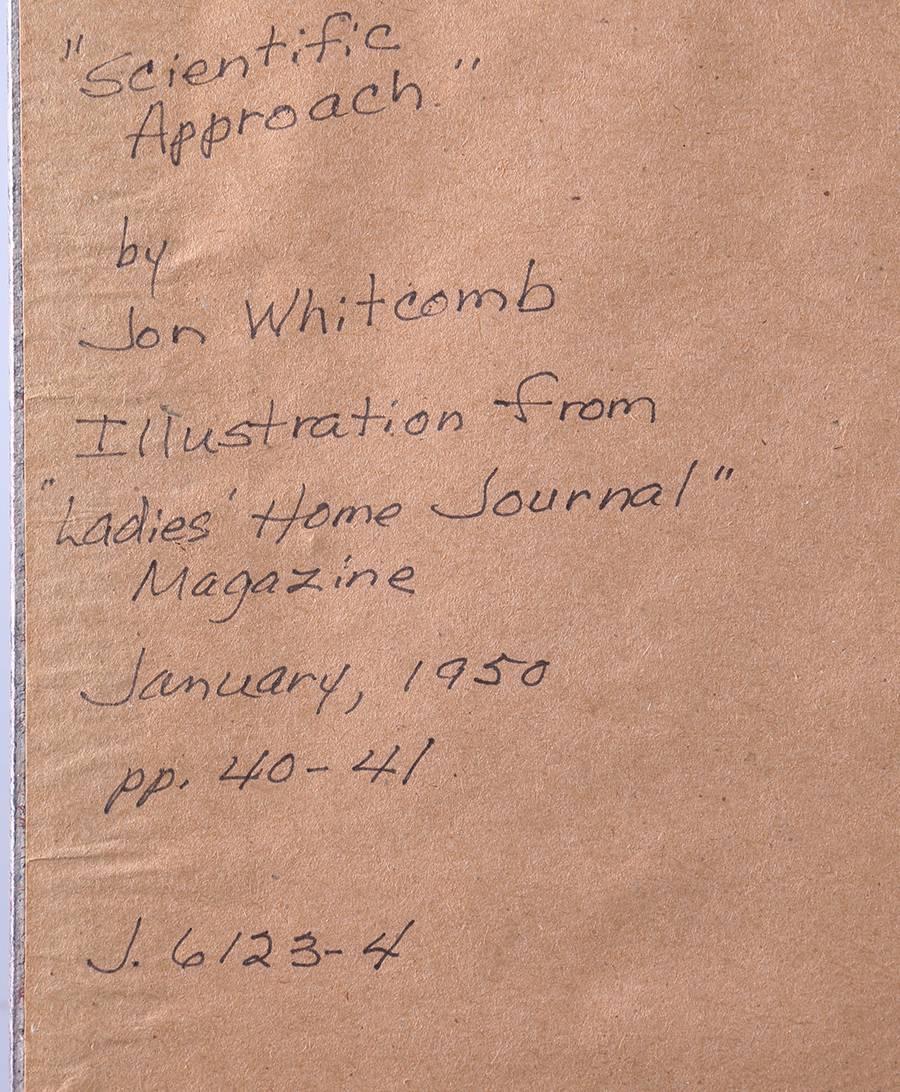 "Scientific
Approach."
by
Jon Whitcomb
Illustration from
"Ladies' Home Journal"
Magazine
January, 1950
pp. 40-41
J. 6123-4